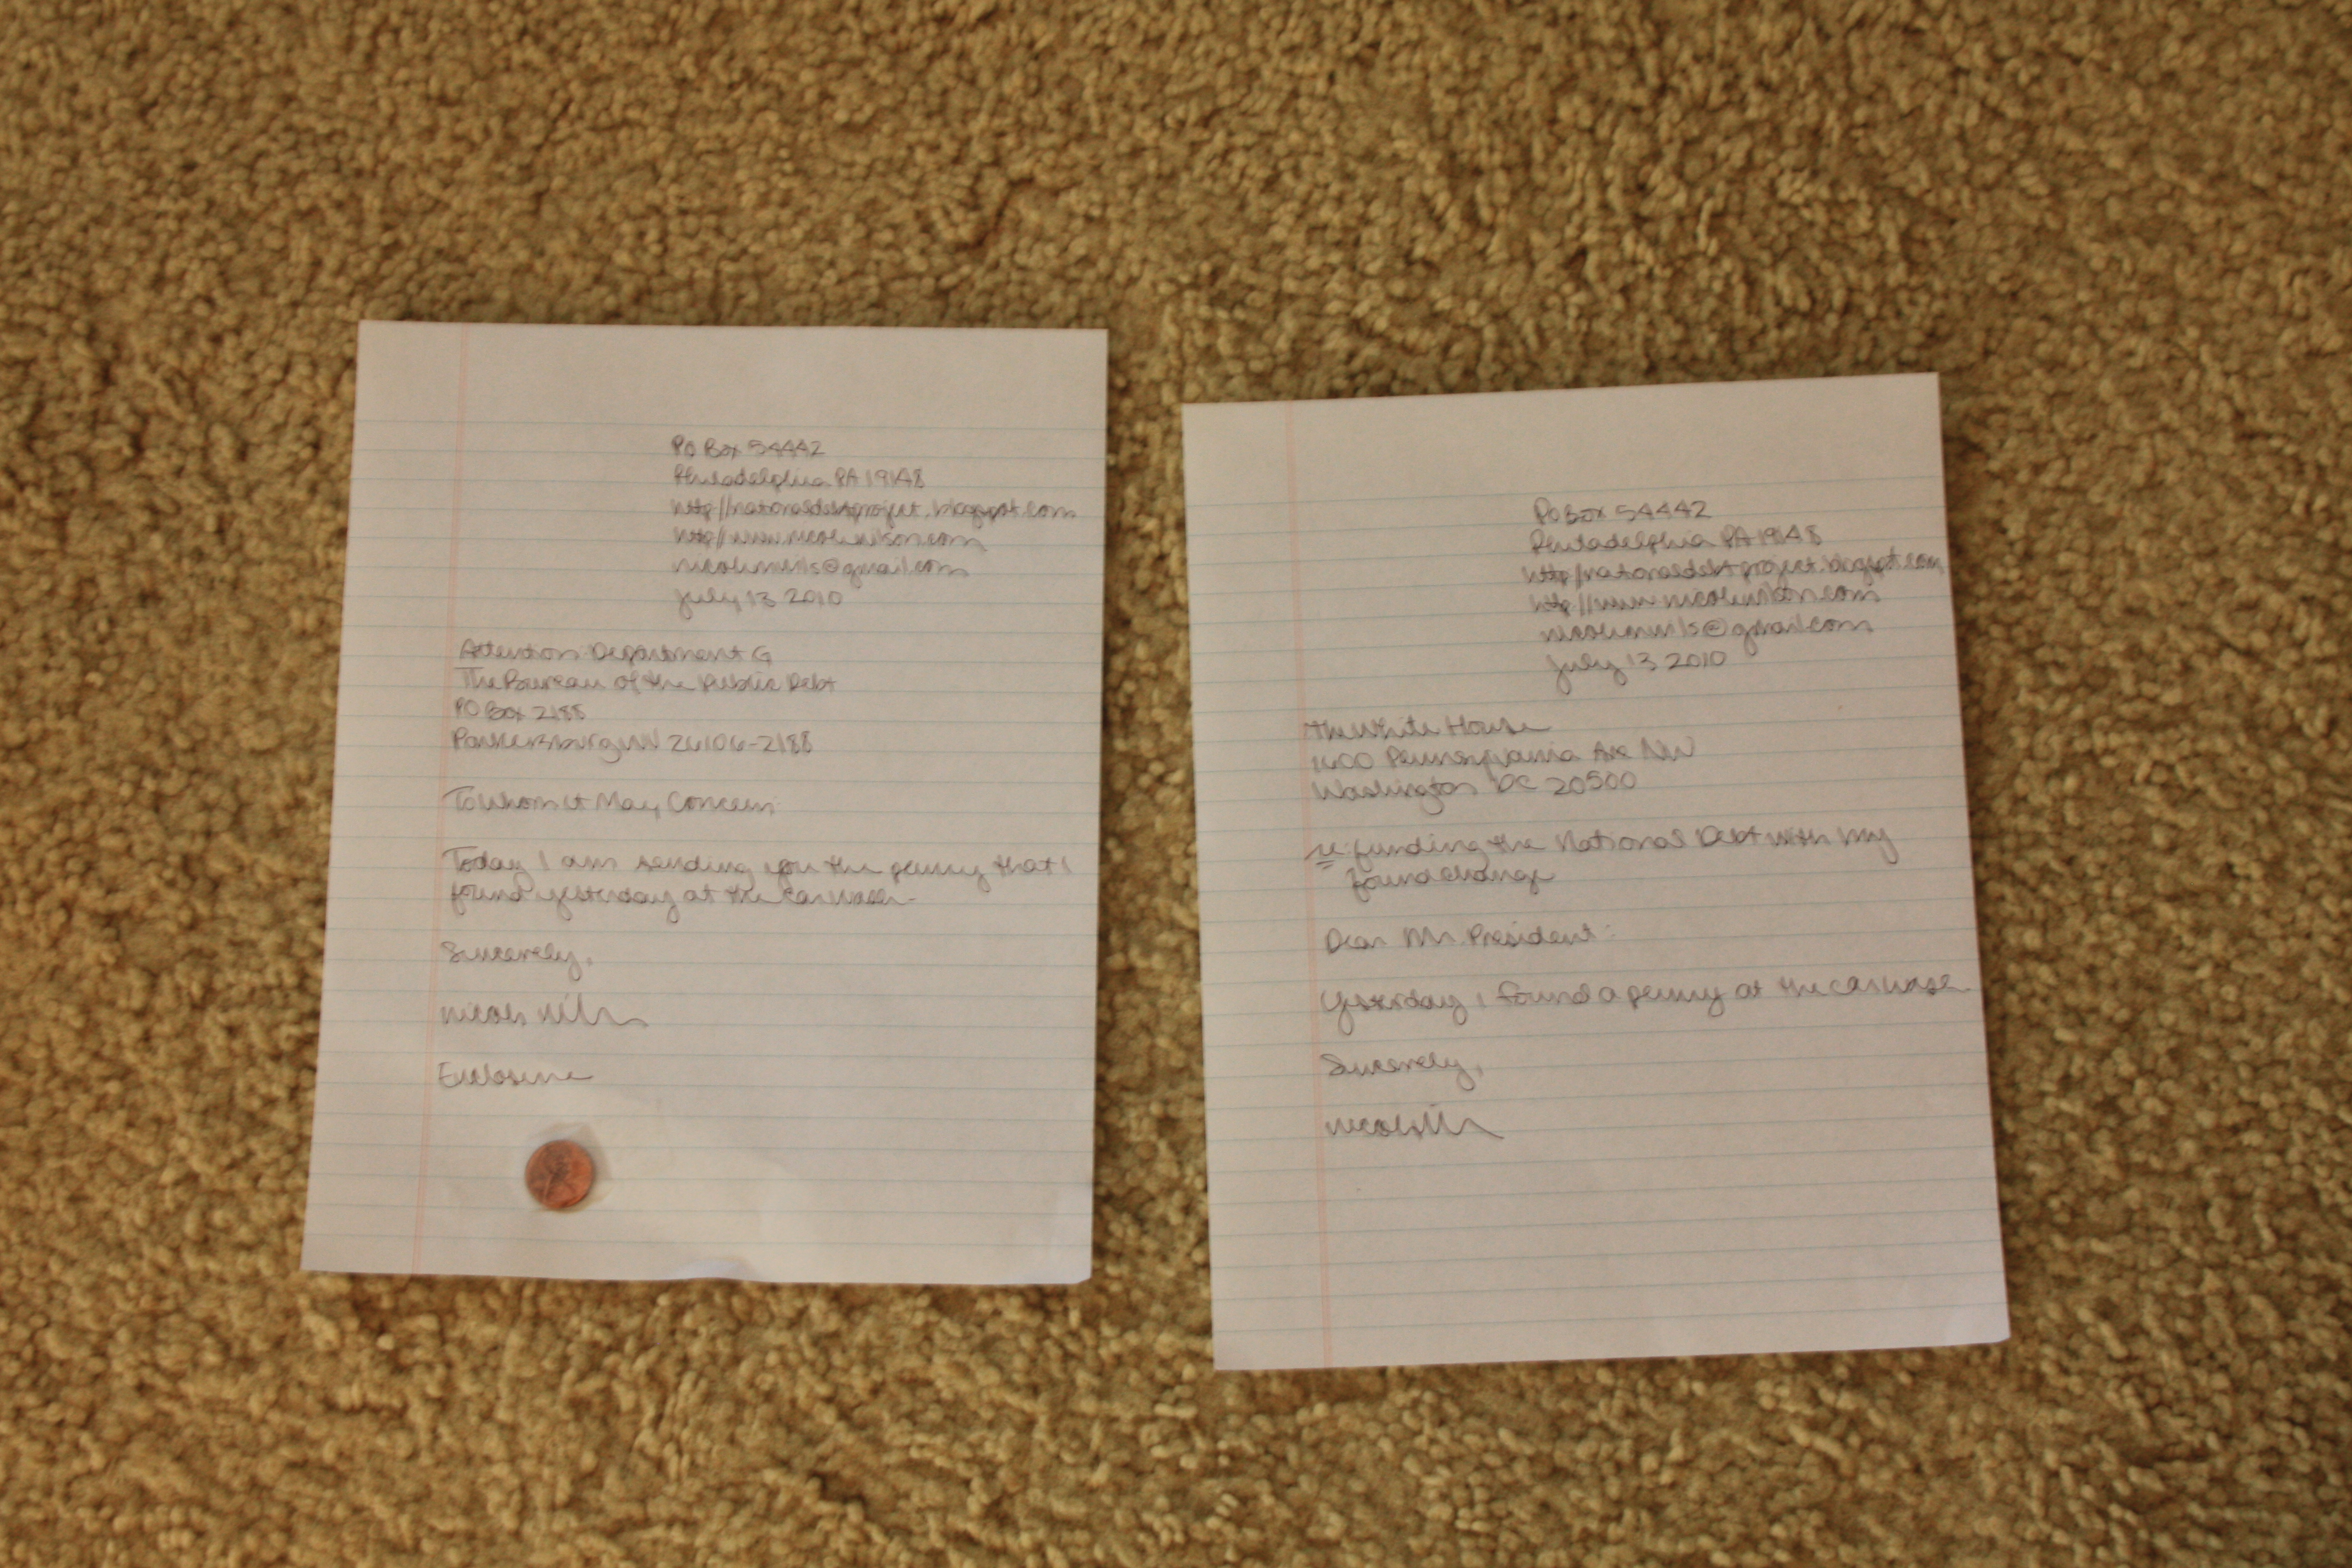 PO Box 54442
Philadelphia PA 19148
http//nationaldebtproject.blogspot.com
http//www.nicolewilson.com
July 13 2010
Attention Department G
The Bureau of the Public Debt
PO Box 2188
Parkersburg WV 26106-2188
To Whom it May Concern:
Today I am sending you the penny that I
found yesterday at the carwash.
Sincerely,
Enclosure
PO Box 54442
Philadelphia PA 19148
http//nationaldebtproject.blogspot.com
http//www.nicolewilson.com
July 13 2010
The White House
1600 Pennsylvania Ave NW
Washington DC 20500
re: funding the National Debt with my
found change
Dear Mr. President:
Yesterday I found a penny at the carwash.
Sincerely,